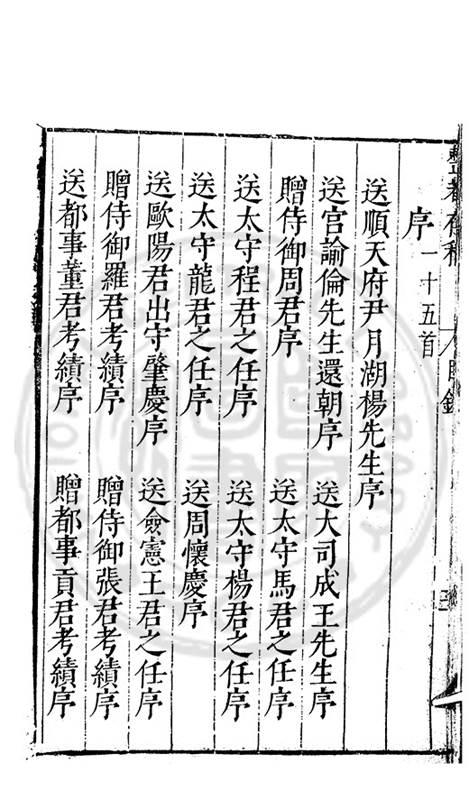 序 一十五首
送順天府尹月湖楊先生序
送宮諭倫先生還朝序 送大司成王先生序
贈侍御周君序 送太守馬君之任序
送太守程君之任序 送太守楊君之任序
送太守龍君之任序 送周懷慶序
送歐陽君出守肇慶序 送僉憲王君之任序
贈侍御羅君考績序 贈侍御張君考績序
送都事董君考績序 贈都事貢君考績序